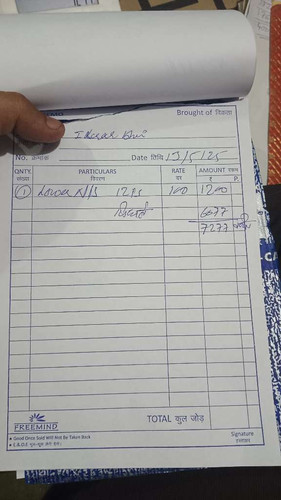 Brought of विकाश
Ikrar Bhai
No. क्रमांक Date तिथि 15/5/25
QNTY. संख्या PARTICULARS विवरण RATE दर AMOUNT रकम ₹ P.
1 Lower N/S 12 Ps 100 1200
6077
7277
FREEMIND TOTAL कुल जोड़
● Good Once Sold Will Not Be Taken Back
● E.&O.E भूल-चूक लेनी देनी।
Signature हस्ताक्षर